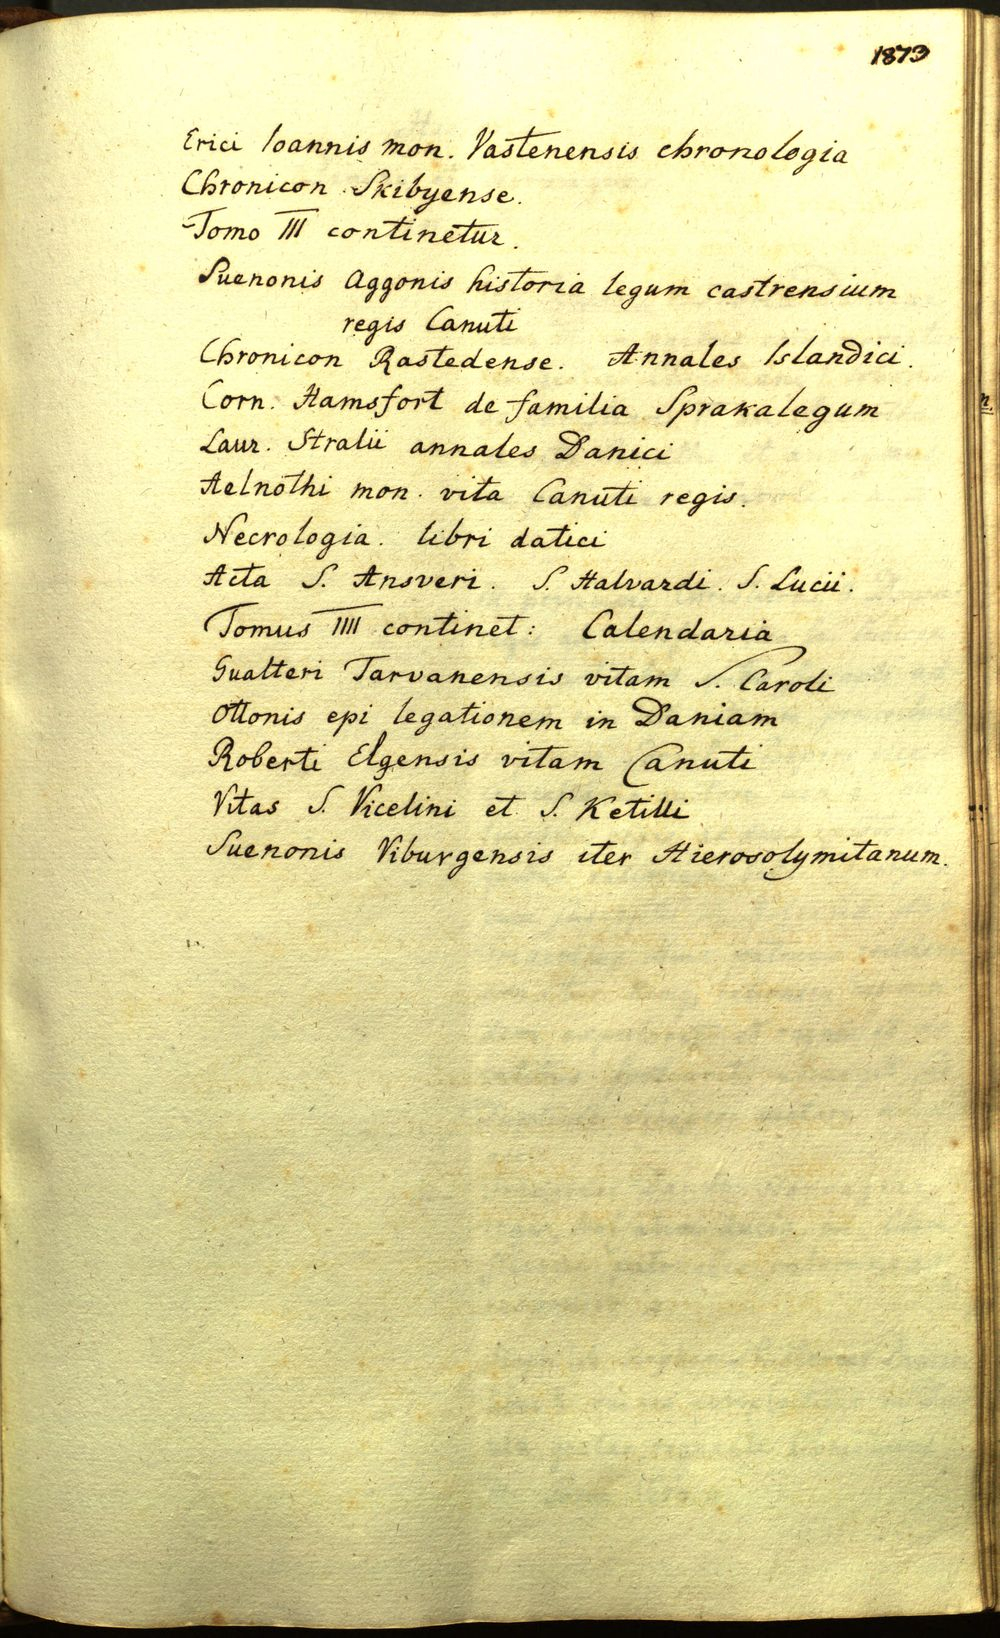 1873
Erici Ioannis mon. Vastenensis chronologia
Chronicon Skibyense.
Tomo III continetur.
Suenonis Aggonis historia legum castrensium
regis Canuti
Chronicon Rastedense. Annales Islandici.
Corn. Hamsfort de familia Sprakalegum
Laur. Stralii annales Danici
Aelnothi mon. vita Canuti regis.
Necrologia. libri datici
Acta S. Ansveri. S. Halvardi. S. Lucii.
Tomus IIII continet: Calendaria
Gualteri Tarvanensis vitam S. Caroli
Ottonis epi legationem in Daniam
Roberti Elgensis vitam Canuti
Vitas S. Vicelini et S. Ketilli
Suenonis Viburgensis iter Hierosolymitanum.